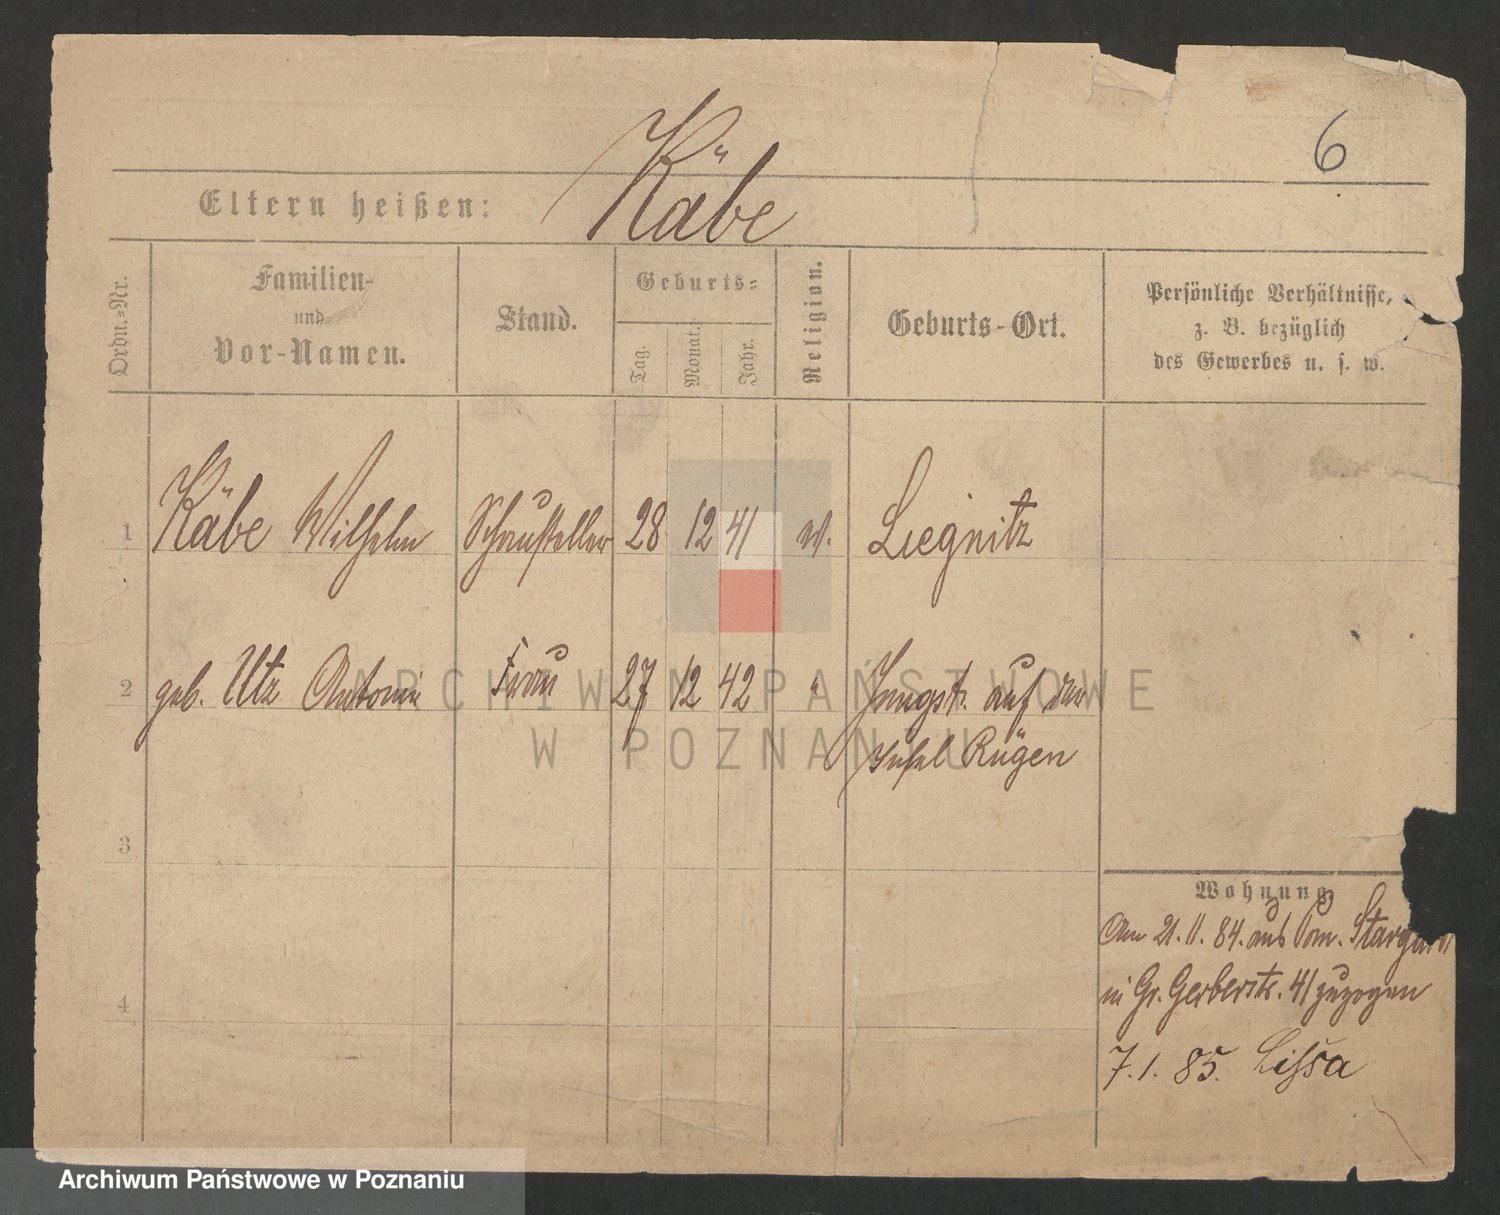 6
Eltern heißen: Käbe
Ordn.-Nr.
Familien-
und
Vor-Namen.
Stand.
Geburts-
Tag.
Monat.
Jahr.
Religion.
Geburts-Ort.
Persönliche Verhältnisse,
z. B. bezüglich
des Gewerbes u. s. w.
1 Käbe Wilhelm Schausteller 28 12 41 Liegnitz
2 geb. Utz Antonie Frau 27 12 42 " auf der
Insel Rügen
3
4
Wohnung
Am 21.11.84. aus Pom. Stargard
in Gr. Gerberstr. 41 zuzogen
7.1.85. Lissa
ARCHIWUM PAŃSTWOWE
W POZNANIU
Archiwum Państwowe w Poznaniu